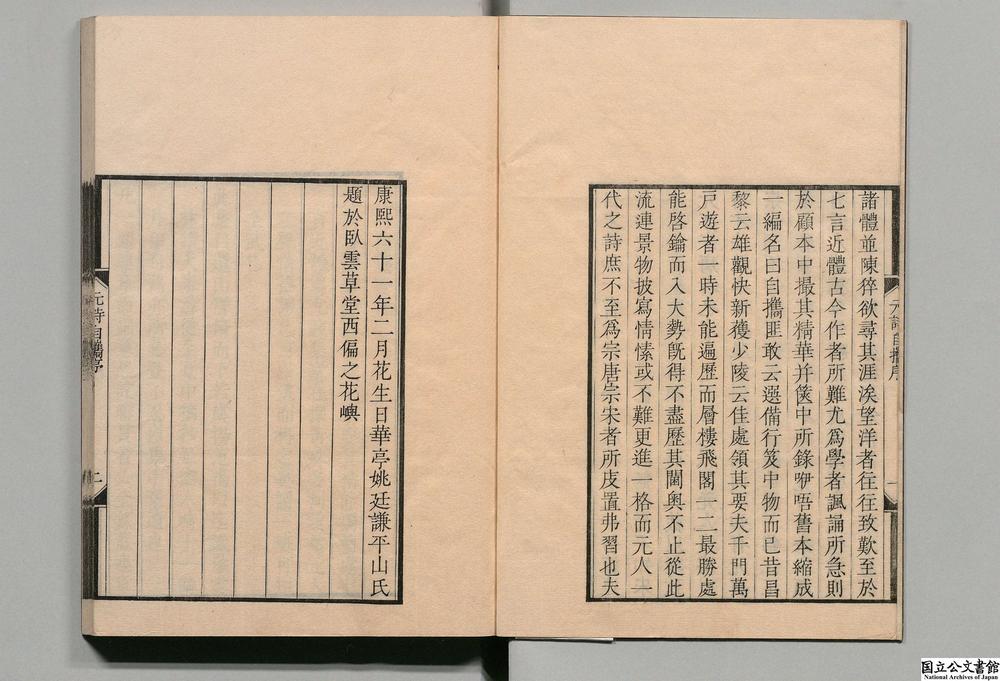 諸體並陳猝欲尋其涯涘望洋者往往致歎至於
七言近體古今作者所難尤爲學者諷誦所急則
於顧本中撮其精華并篋中所錄咿唔舊本縮成
一編名曰自攜匪敢云選備行笈中物而已昔昌
黎云雄觀快新獲少陵云佳處領其要夫千門萬
戸遊者一時未能遍歷而層樓飛閣一二最勝處
能啓鑰而入大勢旣得不盡歷其閫奧不止從此
流連景物披寫情愫或不難更進一格而元人一
代之詩庶不至爲宗唐宗宋者所庋置弗習也夫
元詩自攜序
康熙六十一年二月花生日華亭姚廷謙平山氏
題於臥雲草堂西偏之花嶼
元詩自攜序
二
国立公文書館
National Archives of Japan